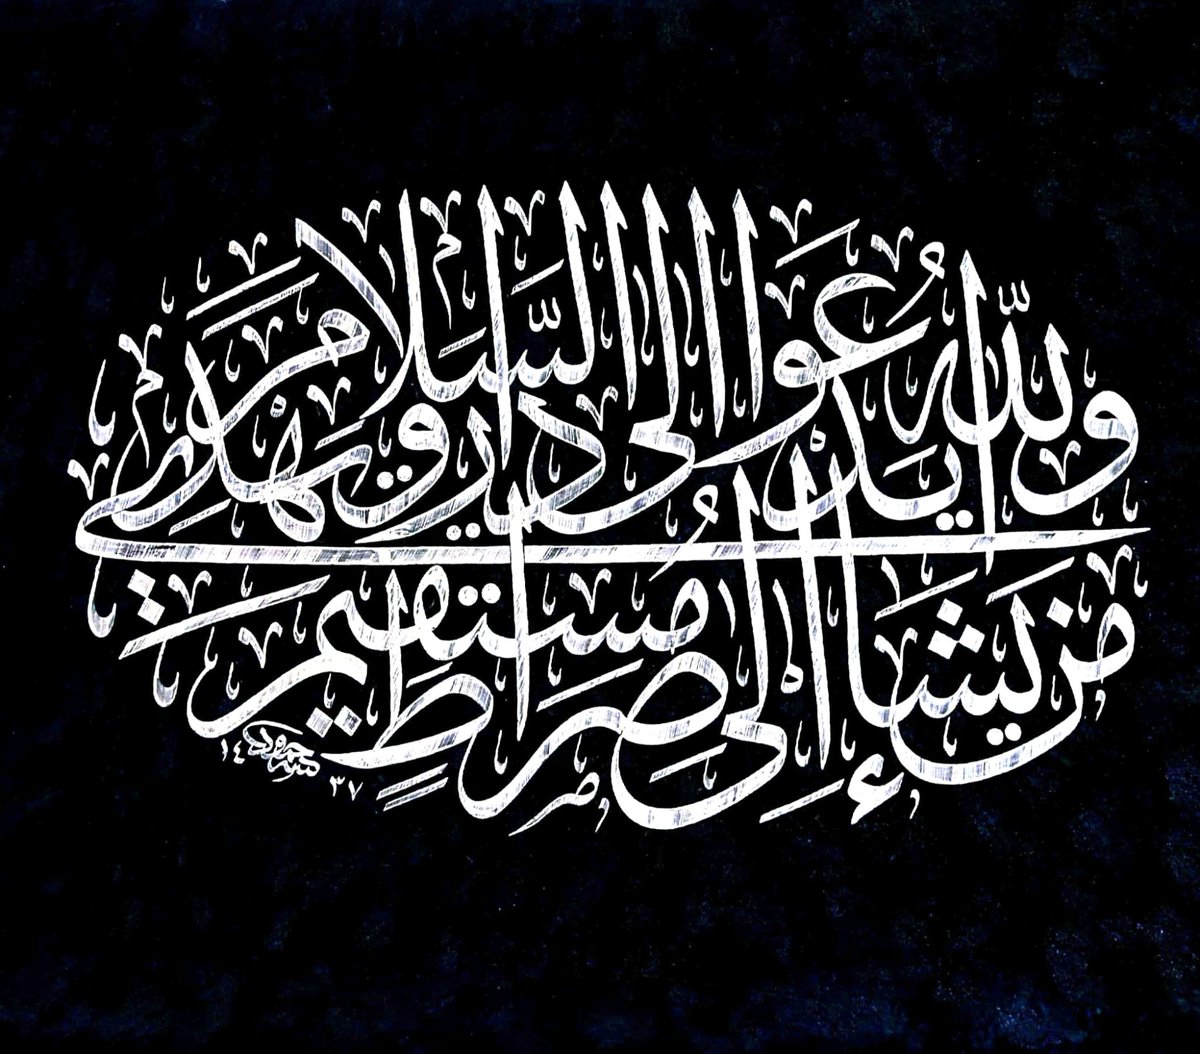 والله يدعوا الى دار السلام ويهدي
من يشاء إلى صراط مستقيم
١٤٣٧